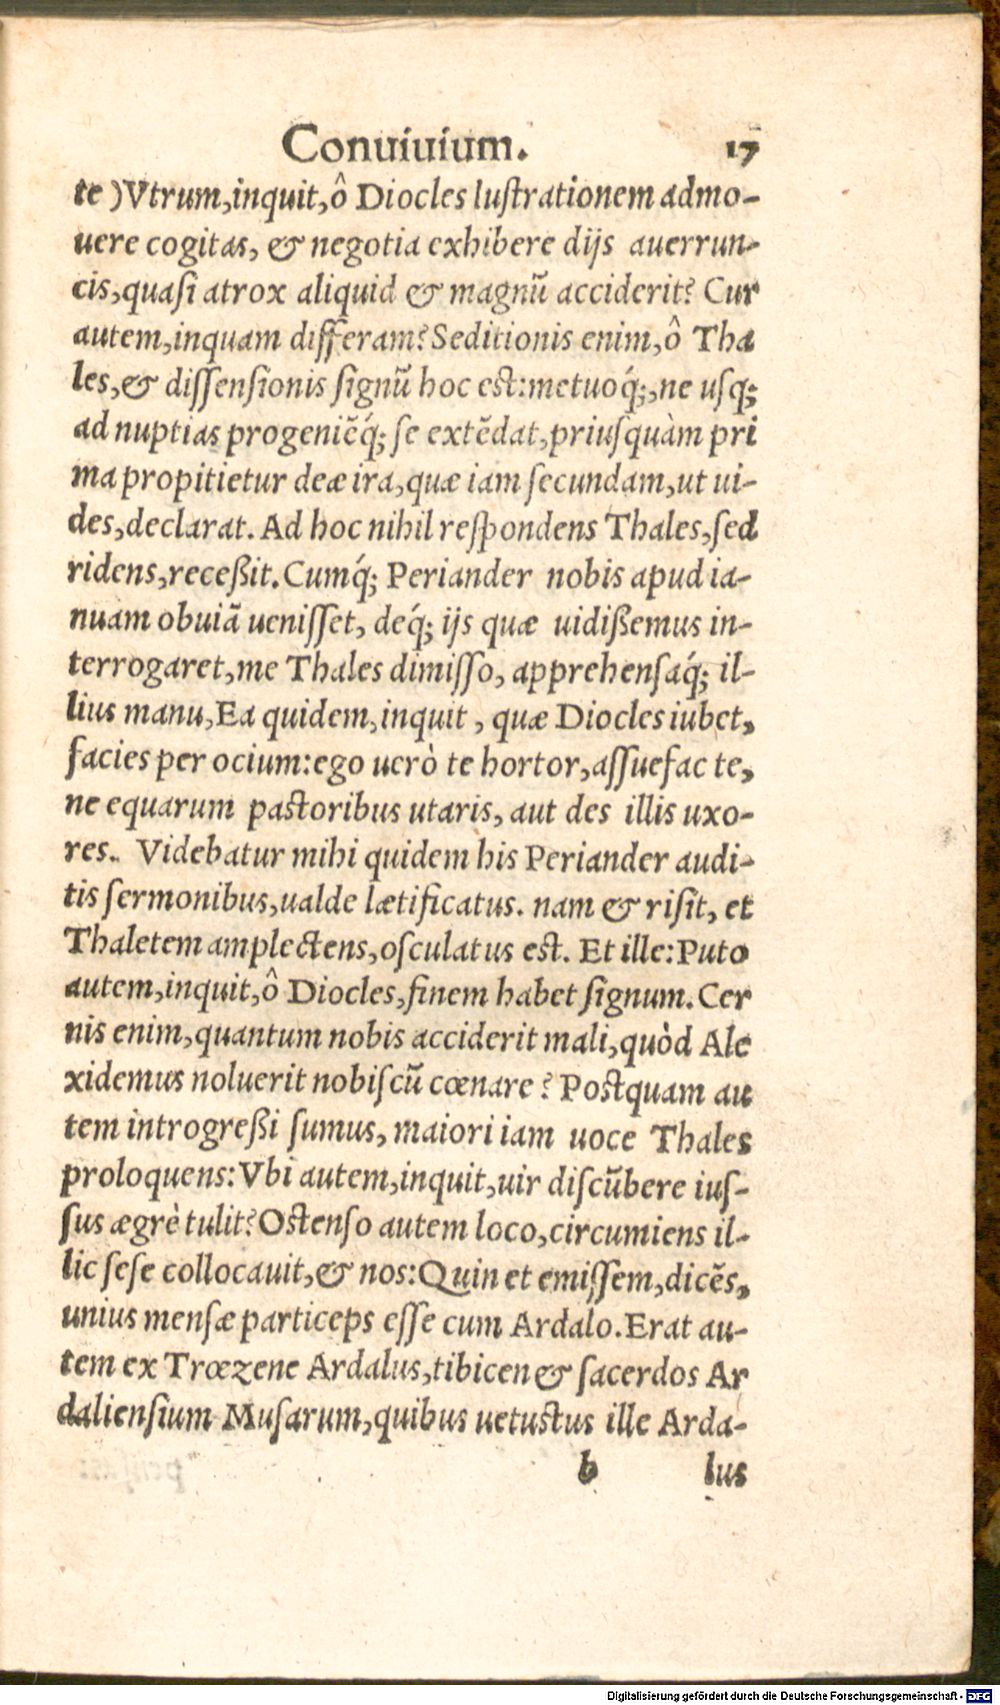 Conuiuium. 17
te) Vtrum, inquit, ô Diocles luſtrationem admo-
uere cogitas, & negotia exhibere dijs auerrun-
cis, quaſi atrox aliquid & magnũ acciderit? Cur
autem, inquam differam? Seditionis enim, ô Tha
les, & diſſenſionis ſignũ hoc est: metuoq́;, ne uſq;
ad nuptias progeniẽq́; ſe extẽdat, priuſquàm pri
ma propitietur deæ ira, quæ iam ſecundam, ut ui-
des, declarat. Ad hoc nihil reſpondens Thales, ſed
ridens, receßit. Cumq́; Periander nobis apud ia-
nuam obuiã ueniſſet, deq́; ijs quæ uidißemus in-
terrogaret, me Thales dimiſſo, apprehenſaq́; il-
lius manu, Ea quidem, inquit, quæ Diocles iubet,
facies per ocium: ego uerò te hortor, aſſuefac te,
ne equarum pastoribus utaris, aut des illis uxo-
res. Videbatur mihi quidem his Periander audi-
tis ſermonibus, ualde lætificatus. nam & riſit, et
Thaletem amplectens, oſculatus est. Et ille: Puto
autem, inquit, ô Diocles, finem habet ſignum. Cer
nis enim, quantum nobis acciderit mali, quòd Ale
xidemus noluerit nobiſcũ cœnare? Postquam au
tem introgreßi ſumus, maiori iam uoce Thales
proloquens: Vbi autem, inquit, uir diſcũbere iuſ-
ſus ægrè tulit? Ostenſo autem loco, circumiens il-
lic ſeſe collocauit, & nos: Quin et emiſſem, dicẽs,
unius menſæ particeps eſſe cum Ardalo. Erat au-
tem ex Trœzene Ardalus, tibicen & ſacerdos Ar
dalienſium Muſarum, quibus uetustus ille Arda-
b lus
Digitalisierung gefördert durch die Deutsche Forschungsgemeinschaft - DFG